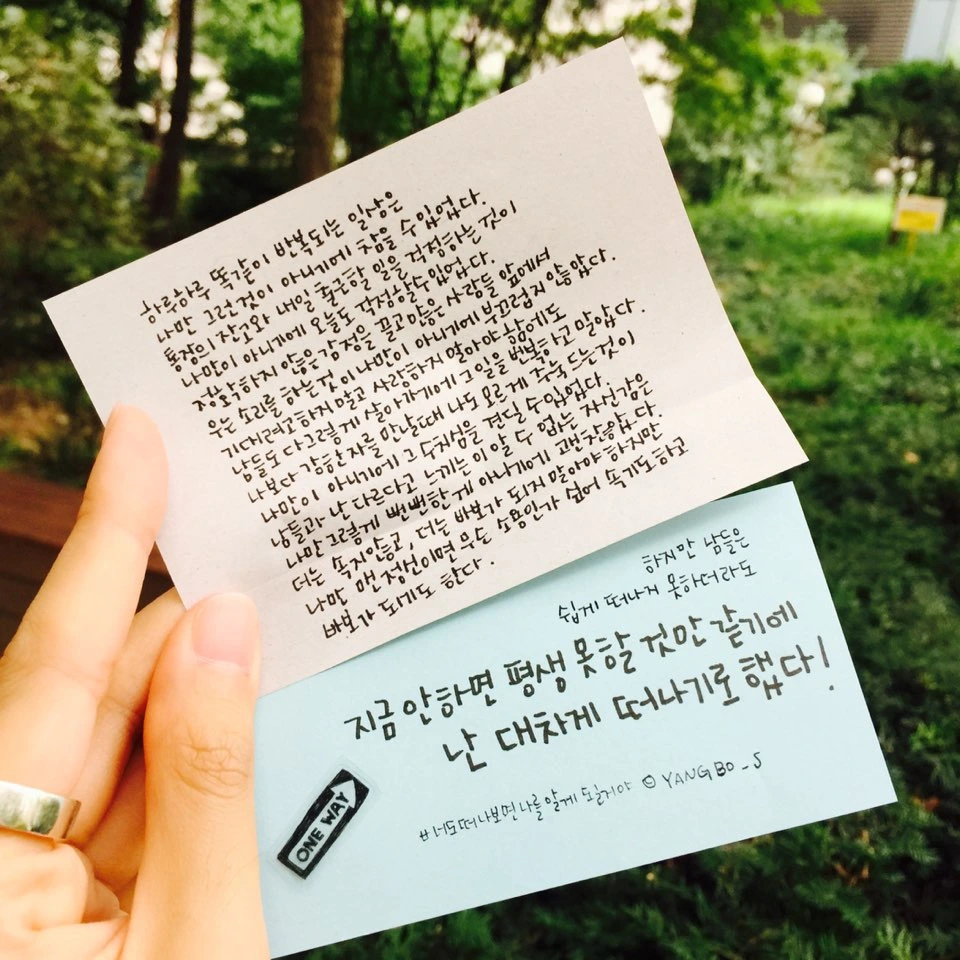 하루하루 똑같이 반복되는 일상은
나만 그런것이 아니기에 참을 수 있었다.
통장의 잔고와 내일 출근할 일을 걱정하는 것이
나만이 아니기에 오늘도 걱정할 수 있었다.
정확하지 않은 감정을 끌고 앉은 사람들 앞에서
우는 소리를 하는것이 나만이 아니기에 부끄럽지 않았다.
기대려고하지 말고 사랑하지 말아야 함에도
남들도 다 그렇게 살아가기에 그 일을 번복하고 말았다.
나보다 강한자를 만날때 나도 모르게 주눅 드는것이
나만이 아니기에 그 수치심을 견딜 수 있었다.
남들과 난 다르다고 느끼는 이 알 수 없는 자신감은
나만 그렇게 뻔뻔한게 아니기에 괜찮았다.
더는 속지않고, 더는 바보가 되지 말아야 하지만
나만 맨 정신이면 무슨 소용인가 싶어 속기도하고
바보가 되기도 한다.
하지만 남들은
쉽게 떠나지 못하더라도
지금 안하면 평생 못할 것만 같기에
난 대차게 떠나기로 했다!
#너도떠나보면나를알게될거야 © YANGBO_S
ONE WAY